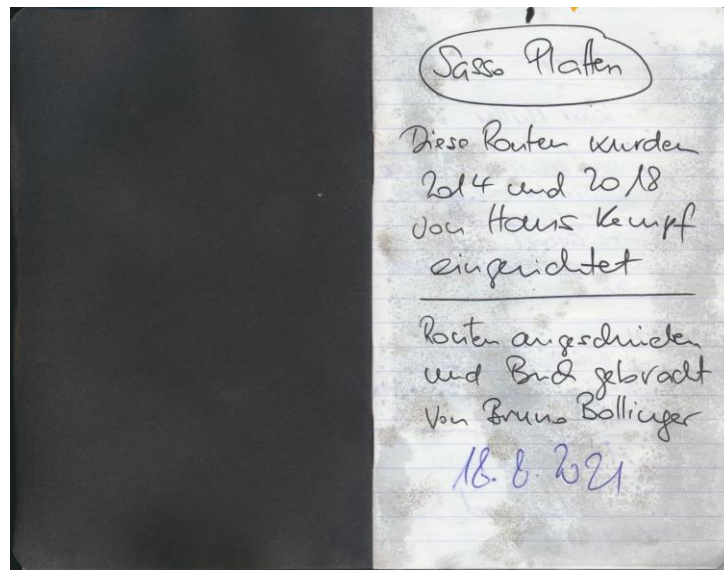 Sasso Platten
Diese Routen wurden
2014 und 2018
von Hans Kempf
eingerichtet
Routen angeschrieben
und Buch gebracht
von Bruno Bollinger
18.8.2021